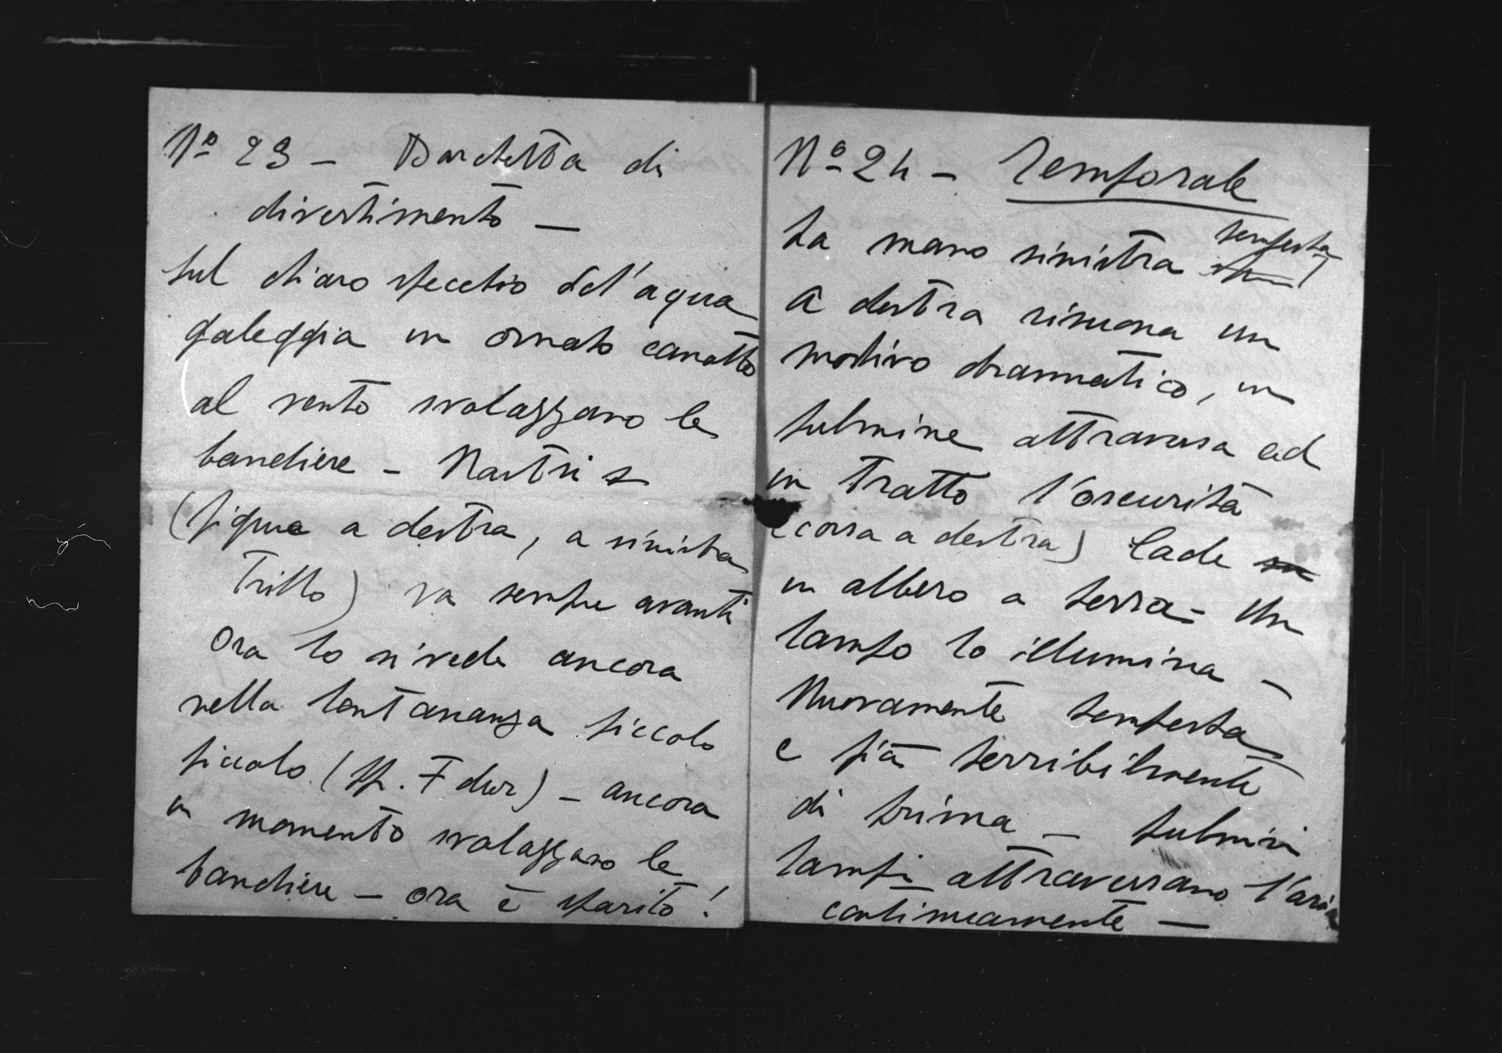 Nº 23 - Barchetta di
divertimento -
Sul chiaro specchio del'aqua
galeggia un ornato canotto
al vento svolazzano le
bandiere - Nastri
(figura a destra, a sinistra
Trillo) va sempre avanti
Ora lo si vede ancora
nella lontananza piccolo
piccolo (pp. F dur) - ancora
un momento svolazzano le
bandiere - ora è sparito!
Nº 24 - Temporale
La mano sinistra tempesta
a destra risuona un
motivo drammatico, un
fulmine attraversa ad
un tratto l'oscurità
(corsa a destra) Cade
un albero a terra - Un
lampo lo illumina -
Nuovamente tempesta
e più terribilmente
di prima - fulmini
lampi attraversano l'aria
continuamente -